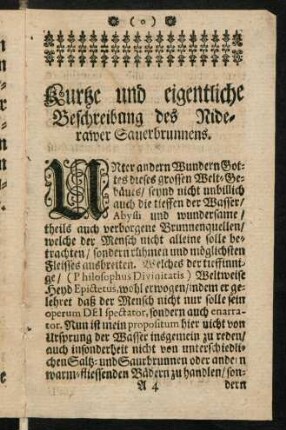 (0)
Kurtze und eigentliche
Beschreibung des Nide-
rawer Sauerbrunnens.
UNter andern Wundern Got-
tes dieses grossen Welt-Ge-
bäues/ seynd nicht unbillich
auch die tieffen der Wasser/
Abyssi und wundersame/
theils auch verborgene Brunnenquellen/
welche der Mensch nicht alleine solle be-
trachten/ sondern rühmen und möglichsten
Fleisses ausbreiten. Welches der treffinni-
ge/ (Philosophus Divinitatis) Weltweise
Heyd Epictetus, wohl erwogen/ indem er ge-
lehret daß der Mensch nicht nur solle sein
operum DEI spectator, sondern auch enarra-
tor. Nun ist mein propositum hier nicht von
Ursprung der Wasser insgemein zu reden/
auch insonderheit nicht von unterschiedli-
chen Saltz- und Saurbrunnen oder andern
warm-fliessenden Bädern zu handlen/ son-
A 4 dern